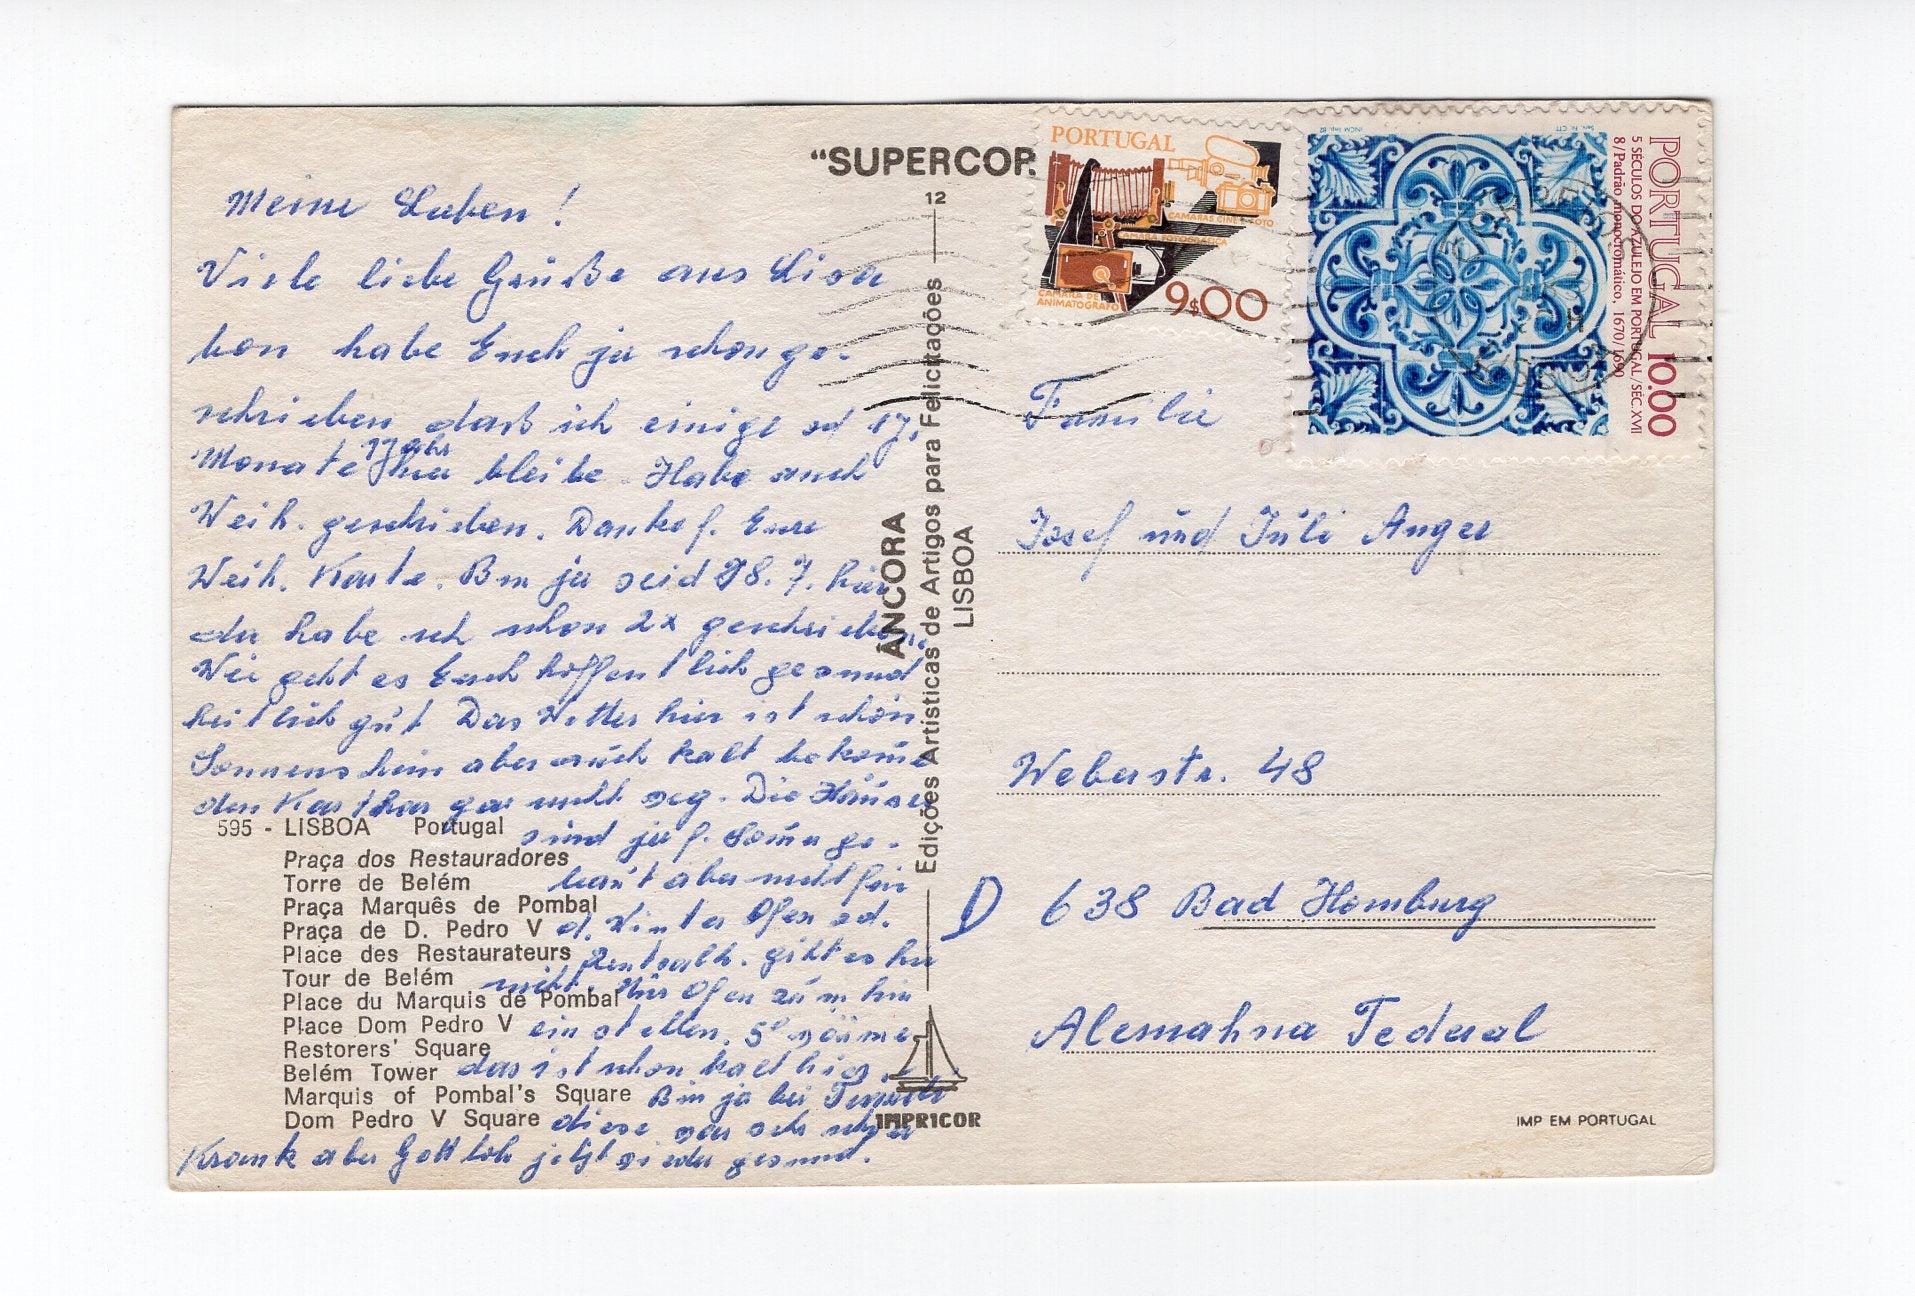 "SUPERCOR
12
Meine Lieben!
Viele liebe Grüße aus Lissa
bon habe Euch ja schon ge-
schrieben das ich einige od 1 J.
Monate 1 Jahr hier bleibe. Habe auch
Weih. geschrieben. Danke f. Eure
Weih. Karte. Bin ja seid 28. 7. hier
da habe ich schon 2x geschrieben.
Wie geht es Euch hoffentlich gesund
heitlich gut Das Wetter hier ist schön
Sonnenschein aber auch kalt bekome
den gar nicht weg. Die Häuser
sind ja f. Somer ge-
baut aber nicht für
d. Winter Ofen od.
Zentralh. gibt es hier
nicht. Nur Ofen zum hin
einstellen. 5°
das ist schon kalt hier.
Bin ja bei
diese war sehr
Krank aber Gott lob jetzt wieder gesund.
595 - LISBOA Portugal
Praça dos Restauradores
Torre de Belém
Praça Marquês de Pombal
Praça de D. Pedro V
Place des Restaurateurs
Tour de Belém
Place du Marquis de Pombal
Place Dom Pedro V
Restorers' Square
Belém Tower
Marquis of Pombal's Square
Dom Pedro V Square
ÂNCORA
Edições Artísticas de Artigos para Felicitações
LISBOA
IMPRICOR
PORTUGAL
CAMARAS CINE E FOTO
CAMARA FOTOGRAFICA
CAMARA DE
ANIMATOGRAFO
9$00
INCM Imp. 82
Serv. Fil. CTT
PORTUGAL 10.00
5 SÉCULOS DO AZULEJO EM PORTUGAL/SÉC. XVII
8/Padrão monocromático, 1670/1690
Familie
Josef und Juli Anger
Weberstr. 48
D 638 Bad Homburg
Alemahna Federal
IMP EM PORTUGAL